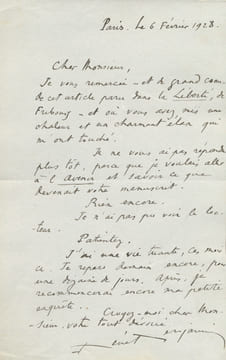 Paris. Le 6 Février 1928.
Cher Monsieur,
Je vous remercie - et de grand cœur -
de cet article paru dans la Liberté, de
Fribourg - et où vous avez mis une
chaleur et un charmant élan qui
m'ont touché.
Je ne vous ai pas répondu
plus tôt, parce que je voulais aller
à l'Avenir et savoir ce que
devenait votre manuscrit.
Rien encore.
Je n'ai pas pu voir le lec-
teur.
Patientez.
J'ai une vie tuante, ces mois
ci. Je repars demain encore, pour
une dizaine de jours. Après, je
recommencerai encore ma petite
enquête.
Croyez-moi, cher Mon-
sieur, votre tout dévoué